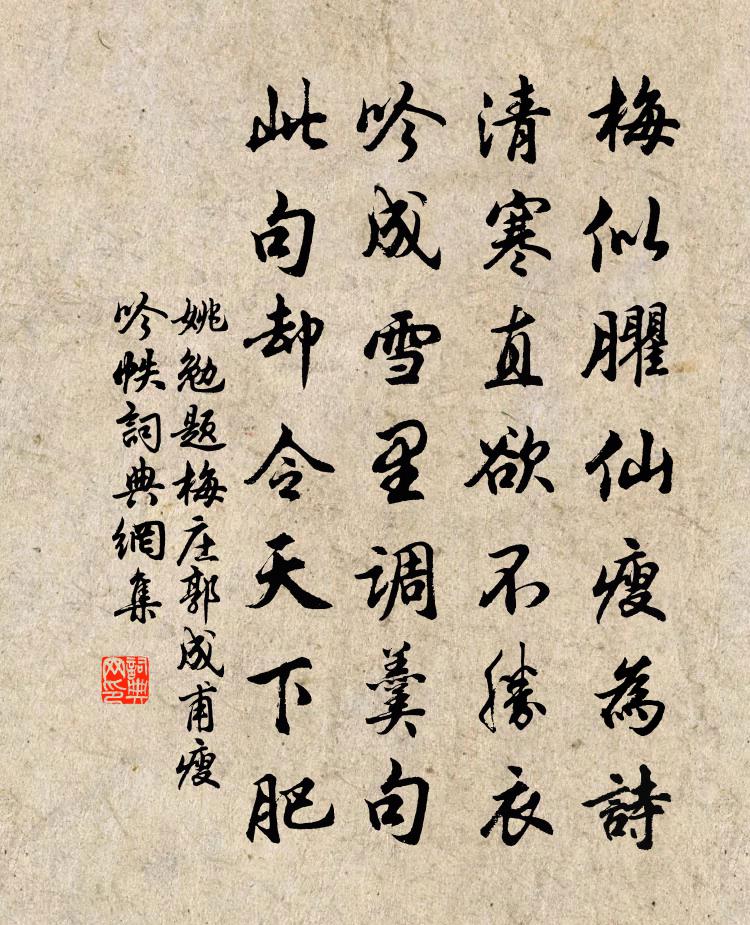 梅似臞仙瘦為詩
清寒直欲不勝衣
吟成雪里调羹句
此句却令天下肥
姚勉题梅庄郭成甫瘦
吟帙詞典網集
詞典
网印